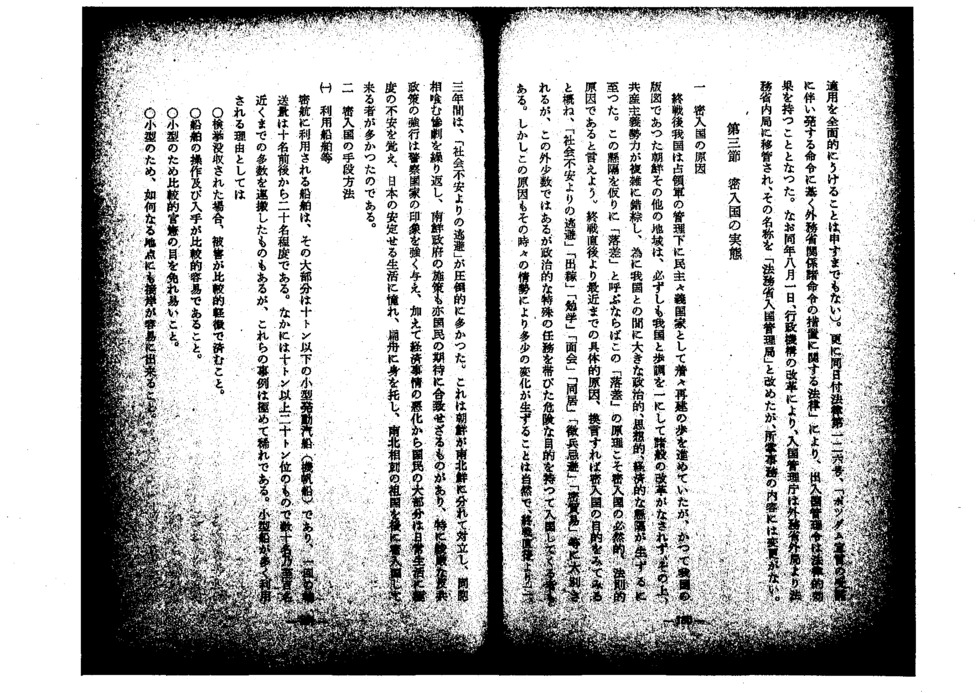 適用を全面的にうけることは申すまでもない)。更に同日付法律第一二六号、「ポツダム宣言の受諾
に伴い発する命令に基く外務省関係諸命令の措置に関する法律」により、出入国管理令は法律的効
果を持つこととなつた。なお同年八月一日、行政機構の改革により、入国管理庁は外務省外局より法
務省内局に移管され、その名称を「法務省入国管理局」と改めたが、所掌事務の内容には変更がない。
第三節 密入国の実態
一 密入国の原因
終戦後我国は占領軍の管理下に民主々義国家として着々再建の歩を進めていたが、かつて我国の
版図であつた朝鮮その他の地域は、必ずしも我国と歩調を一にして諸般の改革がなされず、その上、
共産主義勢力が複雑に錯綜し、為に我国との間に大きな政治的、思想的、経済的な懸隔が生ずるに
至つた。この懸隔を仮りに「落差」と呼ぶならばこの「落差」の原理こそ密入国の必然的、法則的
原因であると言えよう。終戦直後より最近までの具体的原因、換言すれば密入国の目的をみてみる
と概ね、「社会不安よりの逃避」「出稼」「勉学」「面会」「同居」「徴兵忌避」「密貿易」等に大別さ
れるが、この外少数ではあるが政治的な特殊の任務を帯びた危険な目的を持つて入国してくる者も
ある。しかしこの原因もその時々の情勢により多少の変化が生ずることは当然で、終戦直後より二、
—180—
三年間は、「社会不安よりの逃避」が圧倒的に多かつた。これは朝鮮が南北鮮に分れて対立し、同胞
相喰む惨劇を繰り返し、南鮮政府の施策も亦国民の期待に合致せざるものがあり、特に峻厳な反共
政策の強行は警察国家の印象を強く与え、加えて経済事情の悪化から国民の大部分は日常生活に極
度の不安を覚え、日本の安定せる生活に憧れ、扁舟に身を托し、南北相剋の祖国を後に密入国して
来る者が多かつたのである。
二 密入国の手段方法
㈠ 利用船舶等
密航に利用される船舶は、その大部分は十トン以下の小型発動汽船(機帆船)であり、一回の輸
送量は十名前後から二十名程度である。なかには十トン以上二十トン位のもので数十名乃至百名
近くまでの多数を運搬したものもあるが、これらの事例は極めて稀れである。小型船が多く利用
される理由としては
○検挙没収された場合、被害が比較的軽微で済むこと。
○船舶の操作及び入手が比較的容易であること。
○小型のため比較的官憲の目を免れ易いこと。
○小型のため、如何なる地点にも接岸が容易に出来ること。